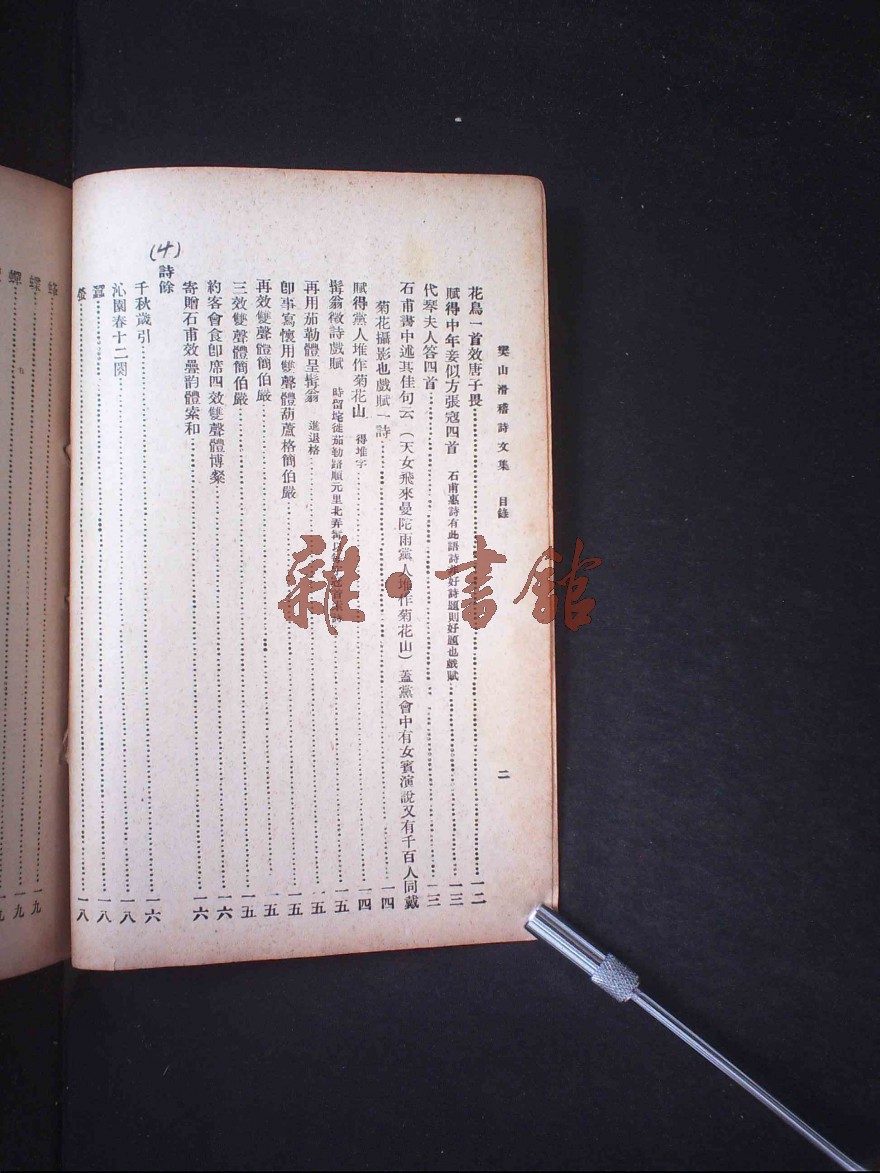 樊山滑稽詩文集　目錄　二
花鳥一首效唐子畏……一二
賦得中年妾似方張寇四首　石甫惠詩有此語詩好詩題則好題也戲賦……一三
代琴夫人答四首……一三
石甫書中述其佳句云（天女飛來曼陀雨黨人堆作菊花山）蓋黨會中有女賓演說又有千百人同戴
菊花攝影也戲賦一詩……一四
賦得黨人堆作菊花山　得堆字……一四
髯翁徵詩戲賦　時留垞徙茄勒路順元里北弄……一五
再用茄勒體呈髯翁　進退格……一五
卽事寫懷用雙聲體葫蘆格簡伯嚴……一五
再效雙聲體簡伯嚴……一五
三效雙聲體簡伯嚴……一五
約客會食卽席四效雙聲體博粲……一六
寄贈石甫效疊韵體索和……一六
(4)
詩餘
千秋歲引……一六
沁園春十二闋……一八
蠶……一八
螢……一八
蝶……一九
蟬……一九
雜·書館